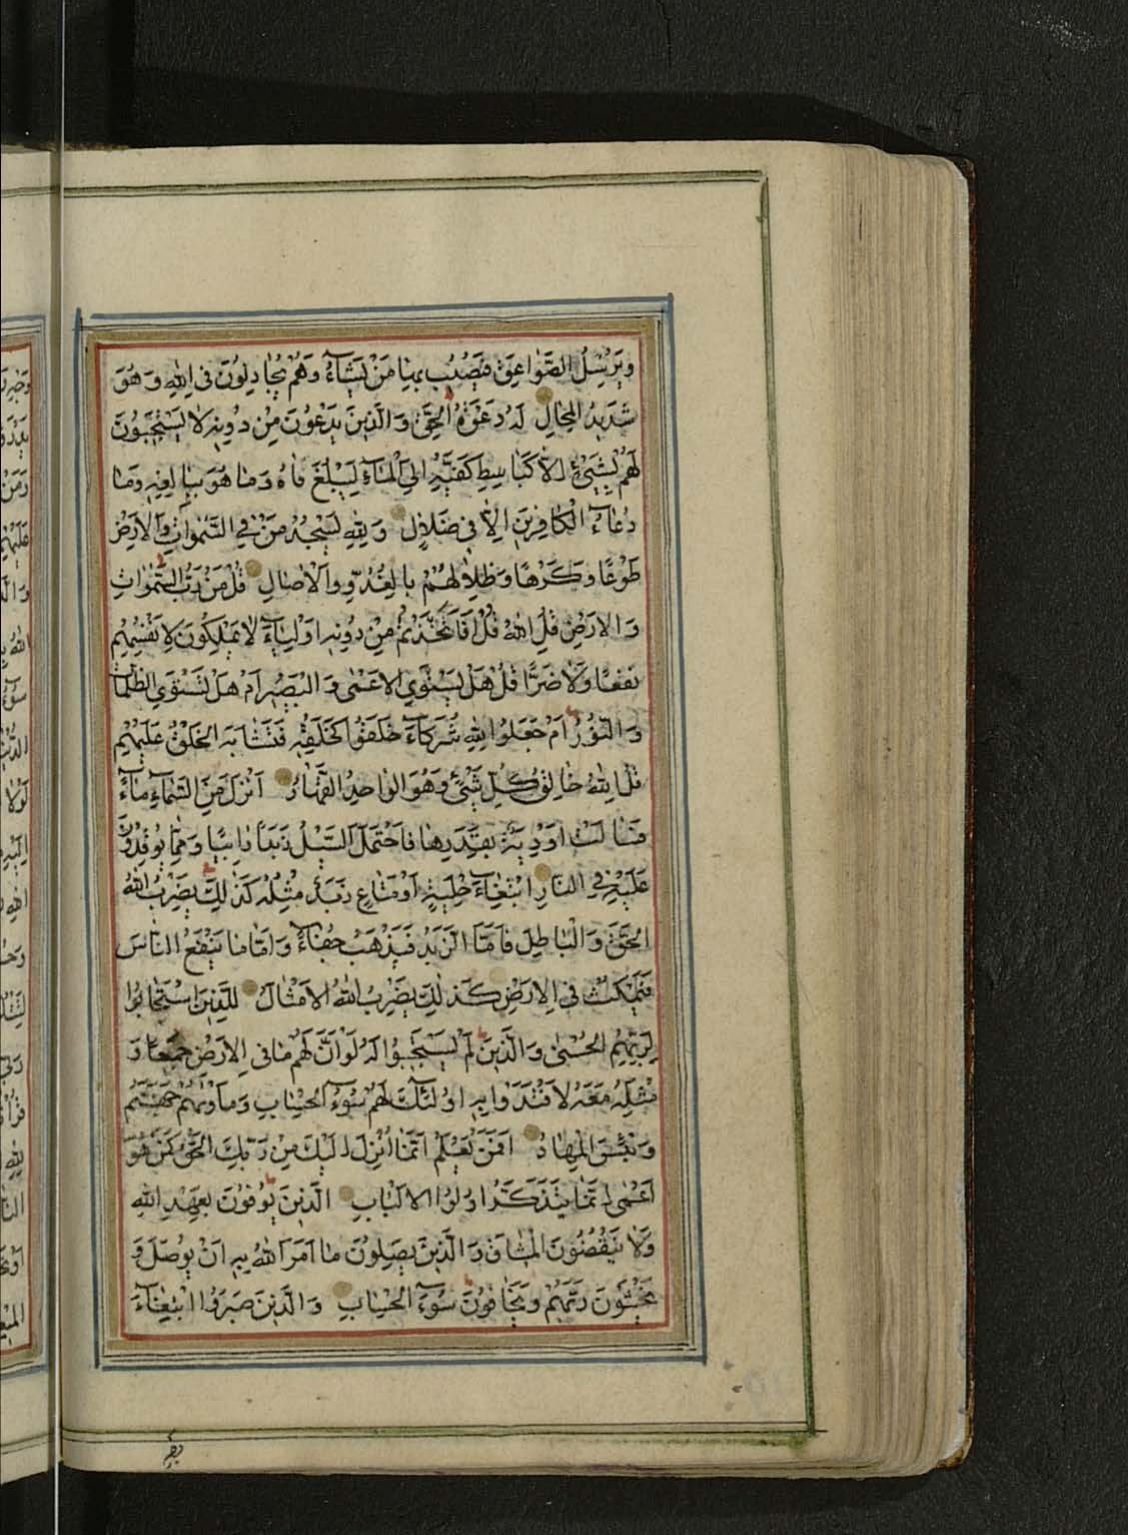 وَيُرْسِلُ الصَّوٰاعِقَ فَيُصِيبُ بِهٰا مَنْ يَشٰآءُ وَهُمْ يُجٰادِلُونَ فِى اللهِ وَهُوَ
شَدِيدُ الْمِحٰالِ لَهُ دَعْوَةُ الْحَقِّ وَالَّذِينَ يَدْعُونَ مِنْ دُونِهِ لٰا يَسْتَجِيبُونَ
لَهُمْ بِشَىْءٍ اِلّٰا كَبٰاسِطِ كَفَّيْهِ اِلَى الْمٰآءِ لِيَبْلُغَ فٰاهُ وَمٰا هُوَ بِبٰالِغِهِ وَمٰا
دُعٰآءُ الْكٰافِرِينَ اِلّٰا فِى ضَلٰالٍ وَلِلّٰهِ يَسْجُدُ مَنْ فِى السَّمٰوٰاتِ وَالْاَرْضِ
طَوْعًا وَكَرْهًا وَظِلٰالُهُمْ بِالْغُدُوِّ وَالْاٰصٰالِ قُلْ مَنْ رَبُّ السَّمٰوٰاتِ
وَالْاَرْضِ قُلِ اللهُ قُلْ اَفَاتَّخَذْتُمْ مِنْ دُونِهِ اَوْلِيٰآءَ لٰا يَمْلِكُونَ لِاَنْفُسِهِمْ
نَفْعًا وَلٰا ضَرًّا قُلْ هَلْ يَسْتَوِى الْاَعْمٰى وَالْبَصِيرُ اَمْ هَلْ تَسْتَوِى الظُّلُمٰاتُ
وَالنُّورُ اَمْ جَعَلُوا لِلّٰهِ شُرَكٰآءَ خَلَقُوا كَخَلْقِهِ فَتَشٰابَهَ الْخَلْقُ عَلَيْهِمْ
قُلِ اللهُ خٰالِقُ كُلِّ شَىْءٍ وَهُوَ الْوٰاحِدُ الْقَهّٰارُ اَنْزَلَ مِنَ السَّمٰآءِ مٰآءً
فَسٰالَتْ اَوْدِيَةٌ بِقَدَرِهٰا فَاحْتَمَلَ السَّيْلُ زَبَدًا رٰابِيًا وَمِمّٰا يُوقِدُونَ
عَلَيْهِ فِى النّٰارِ ابْتِغٰآءَ حِلْيَةٍ اَوْ مَتٰاعٍ زَبَدٌ مِثْلُهُ كَذٰلِكَ يَضْرِبُ اللهُ
الْحَقَّ وَالْبٰاطِلَ فَاَمَّا الزَّبَدُ فَيَذْهَبُ جُفٰآءً وَاَمّٰا مٰا يَنْفَعُ النّٰاسَ
فَيَمْكُثُ فِى الْاَرْضِ كَذٰلِكَ يَضْرِبُ اللهُ الْاَمْثٰالَ لِلَّذِينَ اسْتَجٰابُوا
لِرَبِّهِمُ الْحُسْنٰى وَالَّذِينَ لَمْ يَسْتَجِيبُوا لَهُ لَوْ اَنَّ لَهُمْ مٰا فِى الْاَرْضِ جَمِيعًا وَ
مِثْلَهُ مَعَهُ لَافْتَدَوْا بِهِ اُولٰئِكَ لَهُمْ سُوٓءُ الْحِسٰابِ وَمَاْوٰيهُمْ جَهَنَّمُ
وَبِئْسَ الْمِهٰادُ اَفَمَنْ يَعْلَمُ اَنَّمٰا اُنْزِلَ اِلَيْكَ مِنْ رَبِّكَ الْحَقُّ كَمَنْ هُوَ
اَعْمٰى اِنَّمٰا يَتَذَكَّرُ اُولُوا الْاَلْبٰابِ الَّذِينَ يُوفُونَ بِعَهْدِ اللهِ
وَلٰا يَنْقُضُونَ الْمِيثٰاقَ وَالَّذِينَ يَصِلُونَ مٰا اَمَرَ اللهُ بِهِ اَنْ يُوصَلَ وَ
يَخْشَوْنَ رَبَّهُمْ وَيَخٰافُونَ سُوٓءَ الْحِسٰابِ وَالَّذِينَ صَبَرُوا ابْتِغٰآءَ